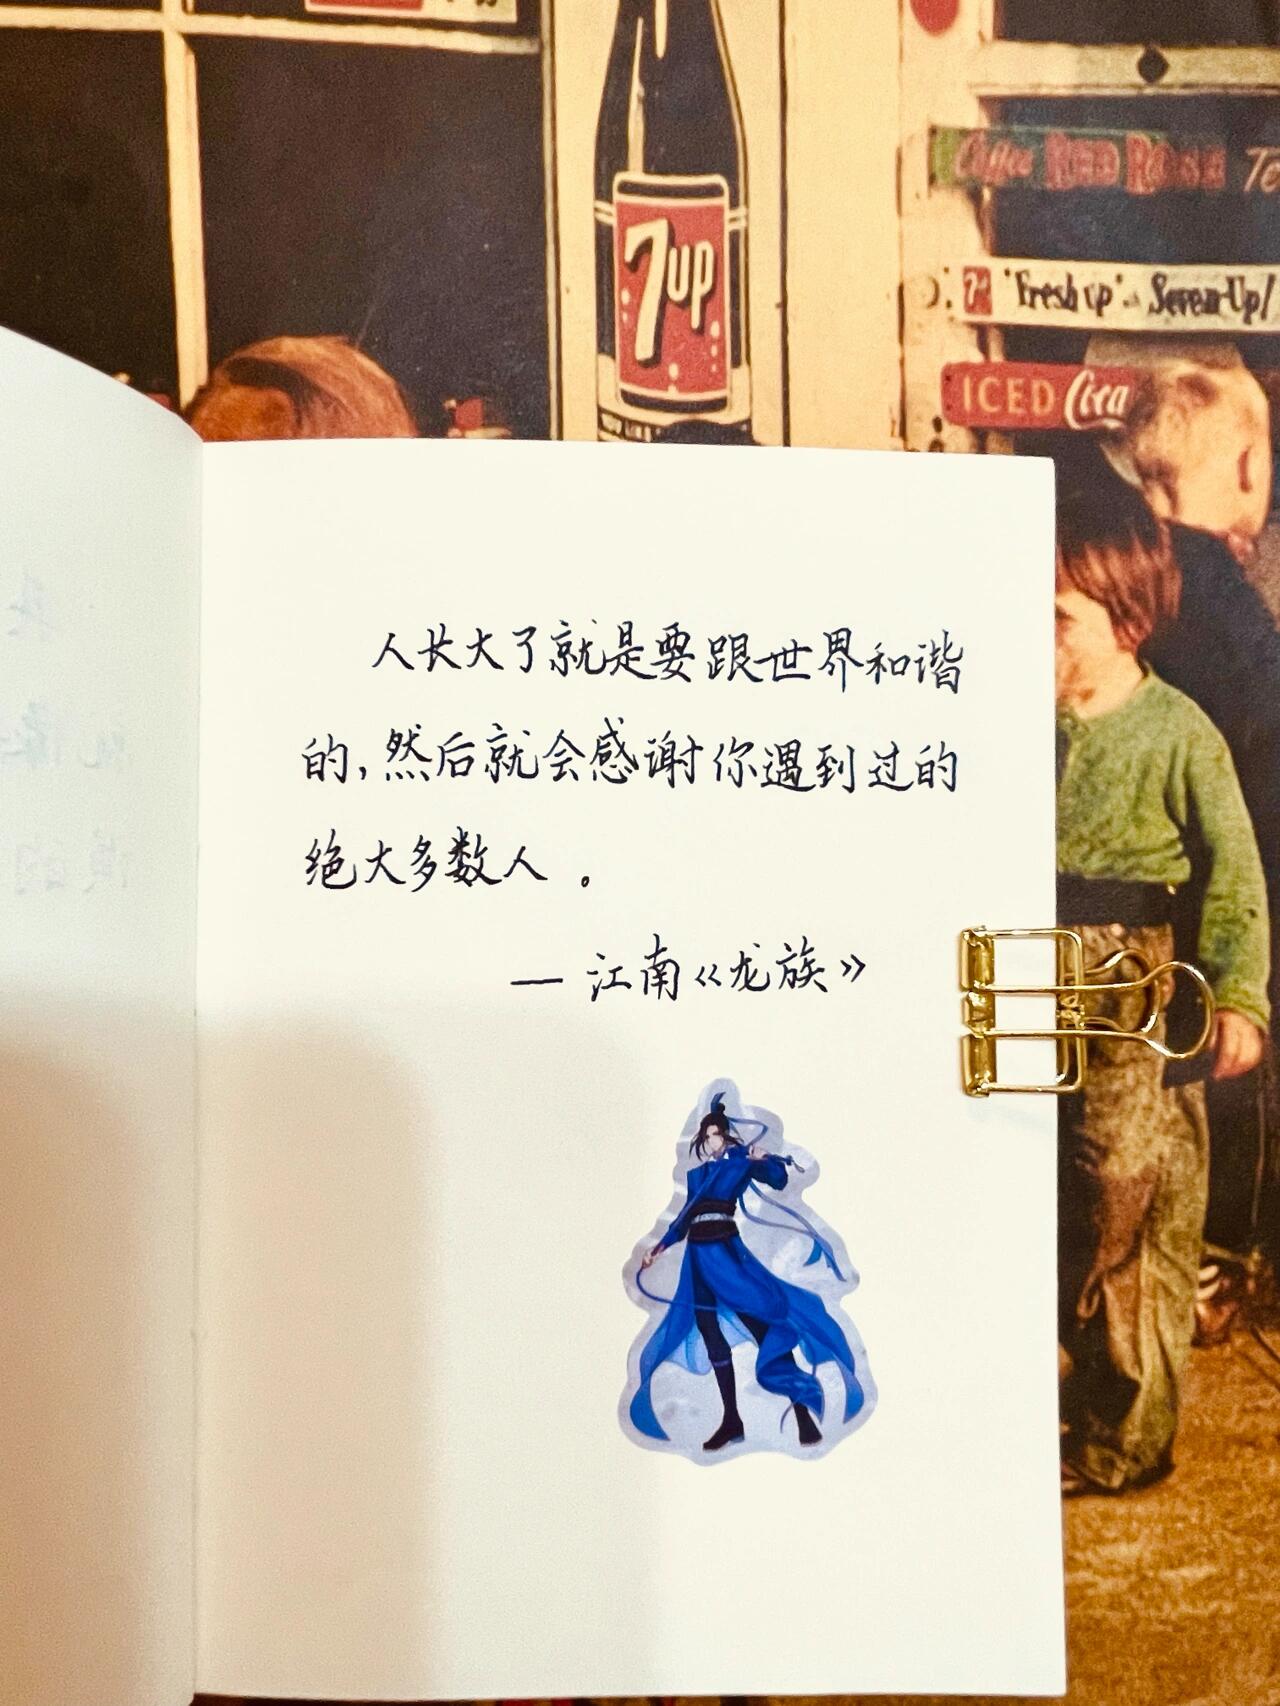 7up
Coffee RED ROSE
7up "Fresh up" Seven-Up!
ICED Coca
人长大了就是要跟世界和谐
的,然后就会感谢你遇到过的
绝大多数人。
— 江南《龙族》